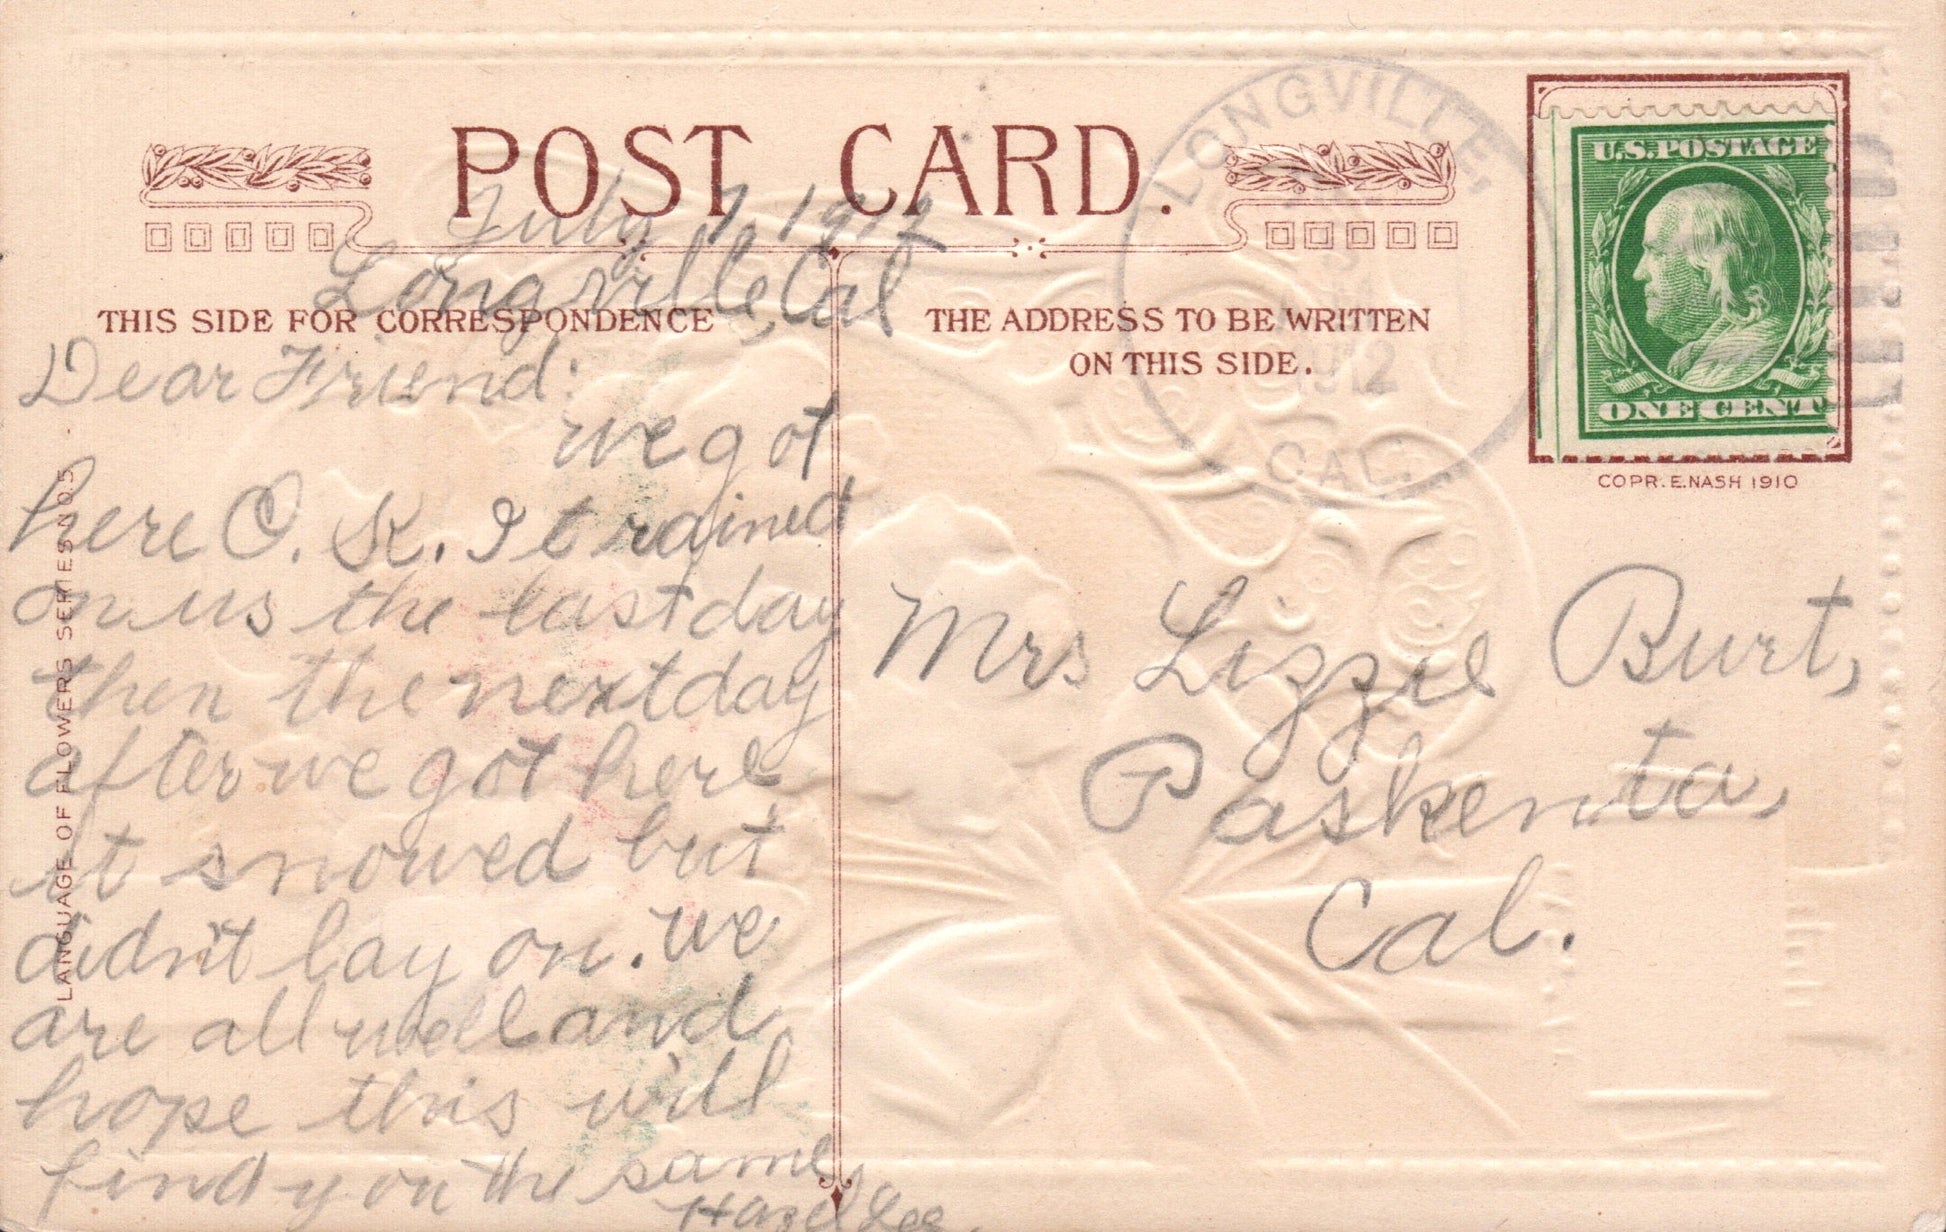 POST CARD.
July 7 1912
Longville, Cal
THIS SIDE FOR CORRESPONDENCE
Dear Friend:
we got
here O. K. It rained
on us the last day
then the next day
after we got here
it snowed but
didn't lay on. we
are all well and
hope this will
find you the same
Hazel Lee.
LANGUAGE OF FLOWERS SERIES NO 5
THE ADDRESS TO BE WRITTEN
ON THIS SIDE.
LONGVILLE,
1912
CAL.
U.S. POSTAGE
ONE CENT
COPR. E. NASH 1910
Mrs Lizzie Burt,
Paskenta,
Cal.